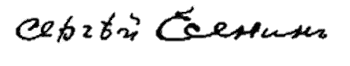 Сергѣй Есенинъ